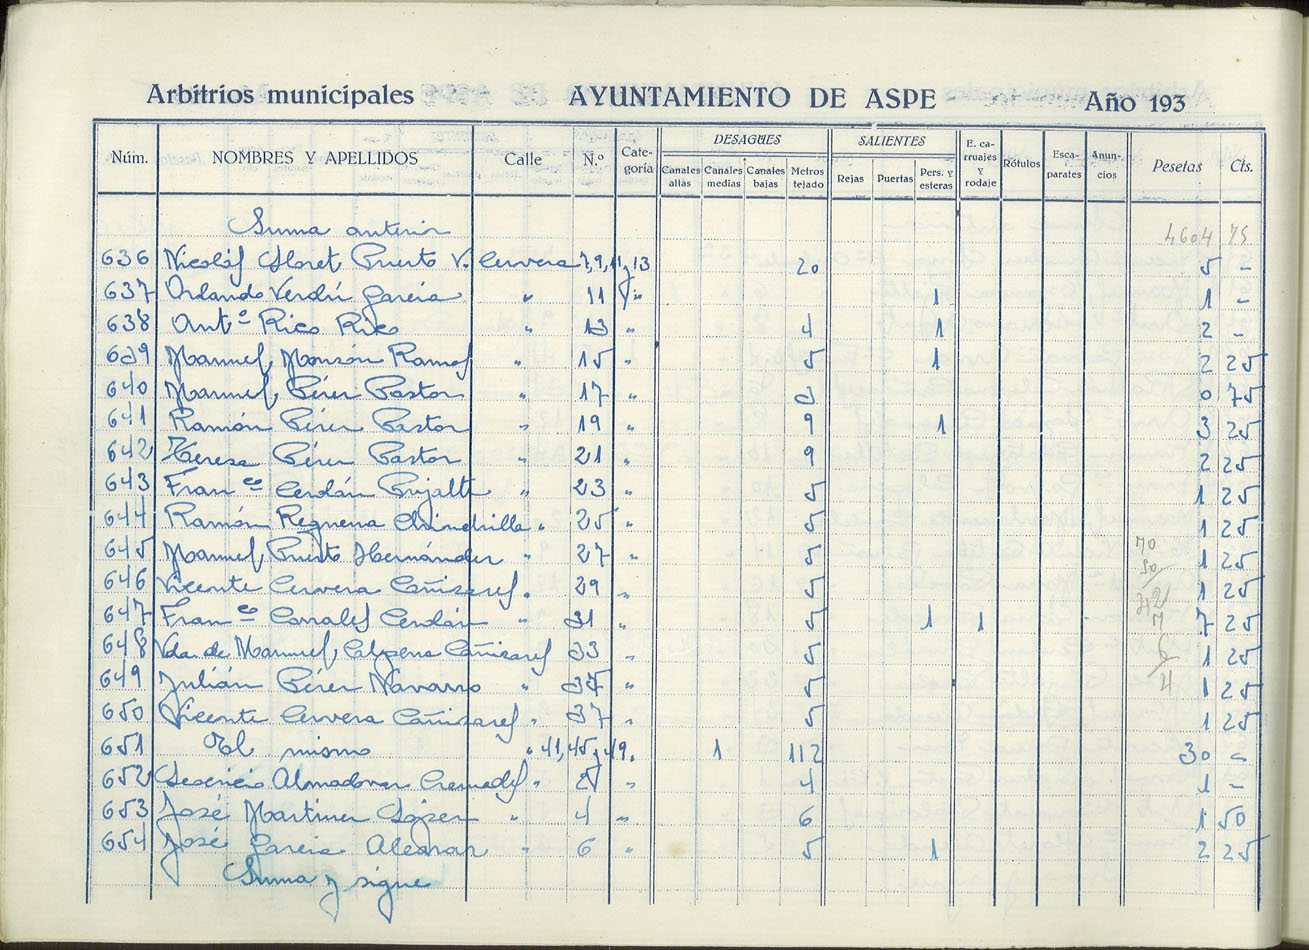 Arbitrios municipales AYUNTAMIENTO DE ASPE Año 193
Núm. NOMBRES Y APELLIDOS Calle N.º Cate-goría DESAGÜES Canales altas Canales medias Canales bajas Metros tejado SALIENTES Rejas Puertas Pers. y esteras E. ca-rruajes y rodaje Rótulos Esca-parates Anun-cios Pesetas Cts.
Suma anterior 4604 75
636 Nicolás Lloret Puerto V. Cervera 7, 9, 11 y 13 20 5 -
637 Orlando Verdú García " 11 " 1 1 -
638 Antº Rico Rico " 13 " 4 1 2 -
639 Manuel Monzón Ramos " 15 " 5 1 2 25
640 Manuel Pérez Pastor " 17 " 3 0 75
641 Ramón Pérez Pastor " 19 " 9 1 3 25
642 Teresa Pérez Pastor " 21 " 9 2 25
643 Franco Cerdán Pujalte " 23 " 5 1 25
644 Ramón Requena Chinchilla " 25 " 5 1 25
645 Manuel Puerto Hernández " 27 " 5 1 25
646 Vicente Cervera Cañizares " 29 " 5 1 25
647 Franco Carralés Cerdán " 31 " 5 1 1 7 25
648 Vda. de Manuel Calpena Cañizares 33 " 5 1 25
649 Julián Pérez Navarro " 35 " 5 1 25
650 Vicente Cervera Cañizares " 37 " 5 1 25
651 El mismo " 41, 45 y 49. 1 112 30 -
652 Almodovar Cremades " " 4 1 -
653 José Martínez López " 4 " 6 1 50
654 José García Alcaraz " 6 " 5 1 2 25
Suma y sigue